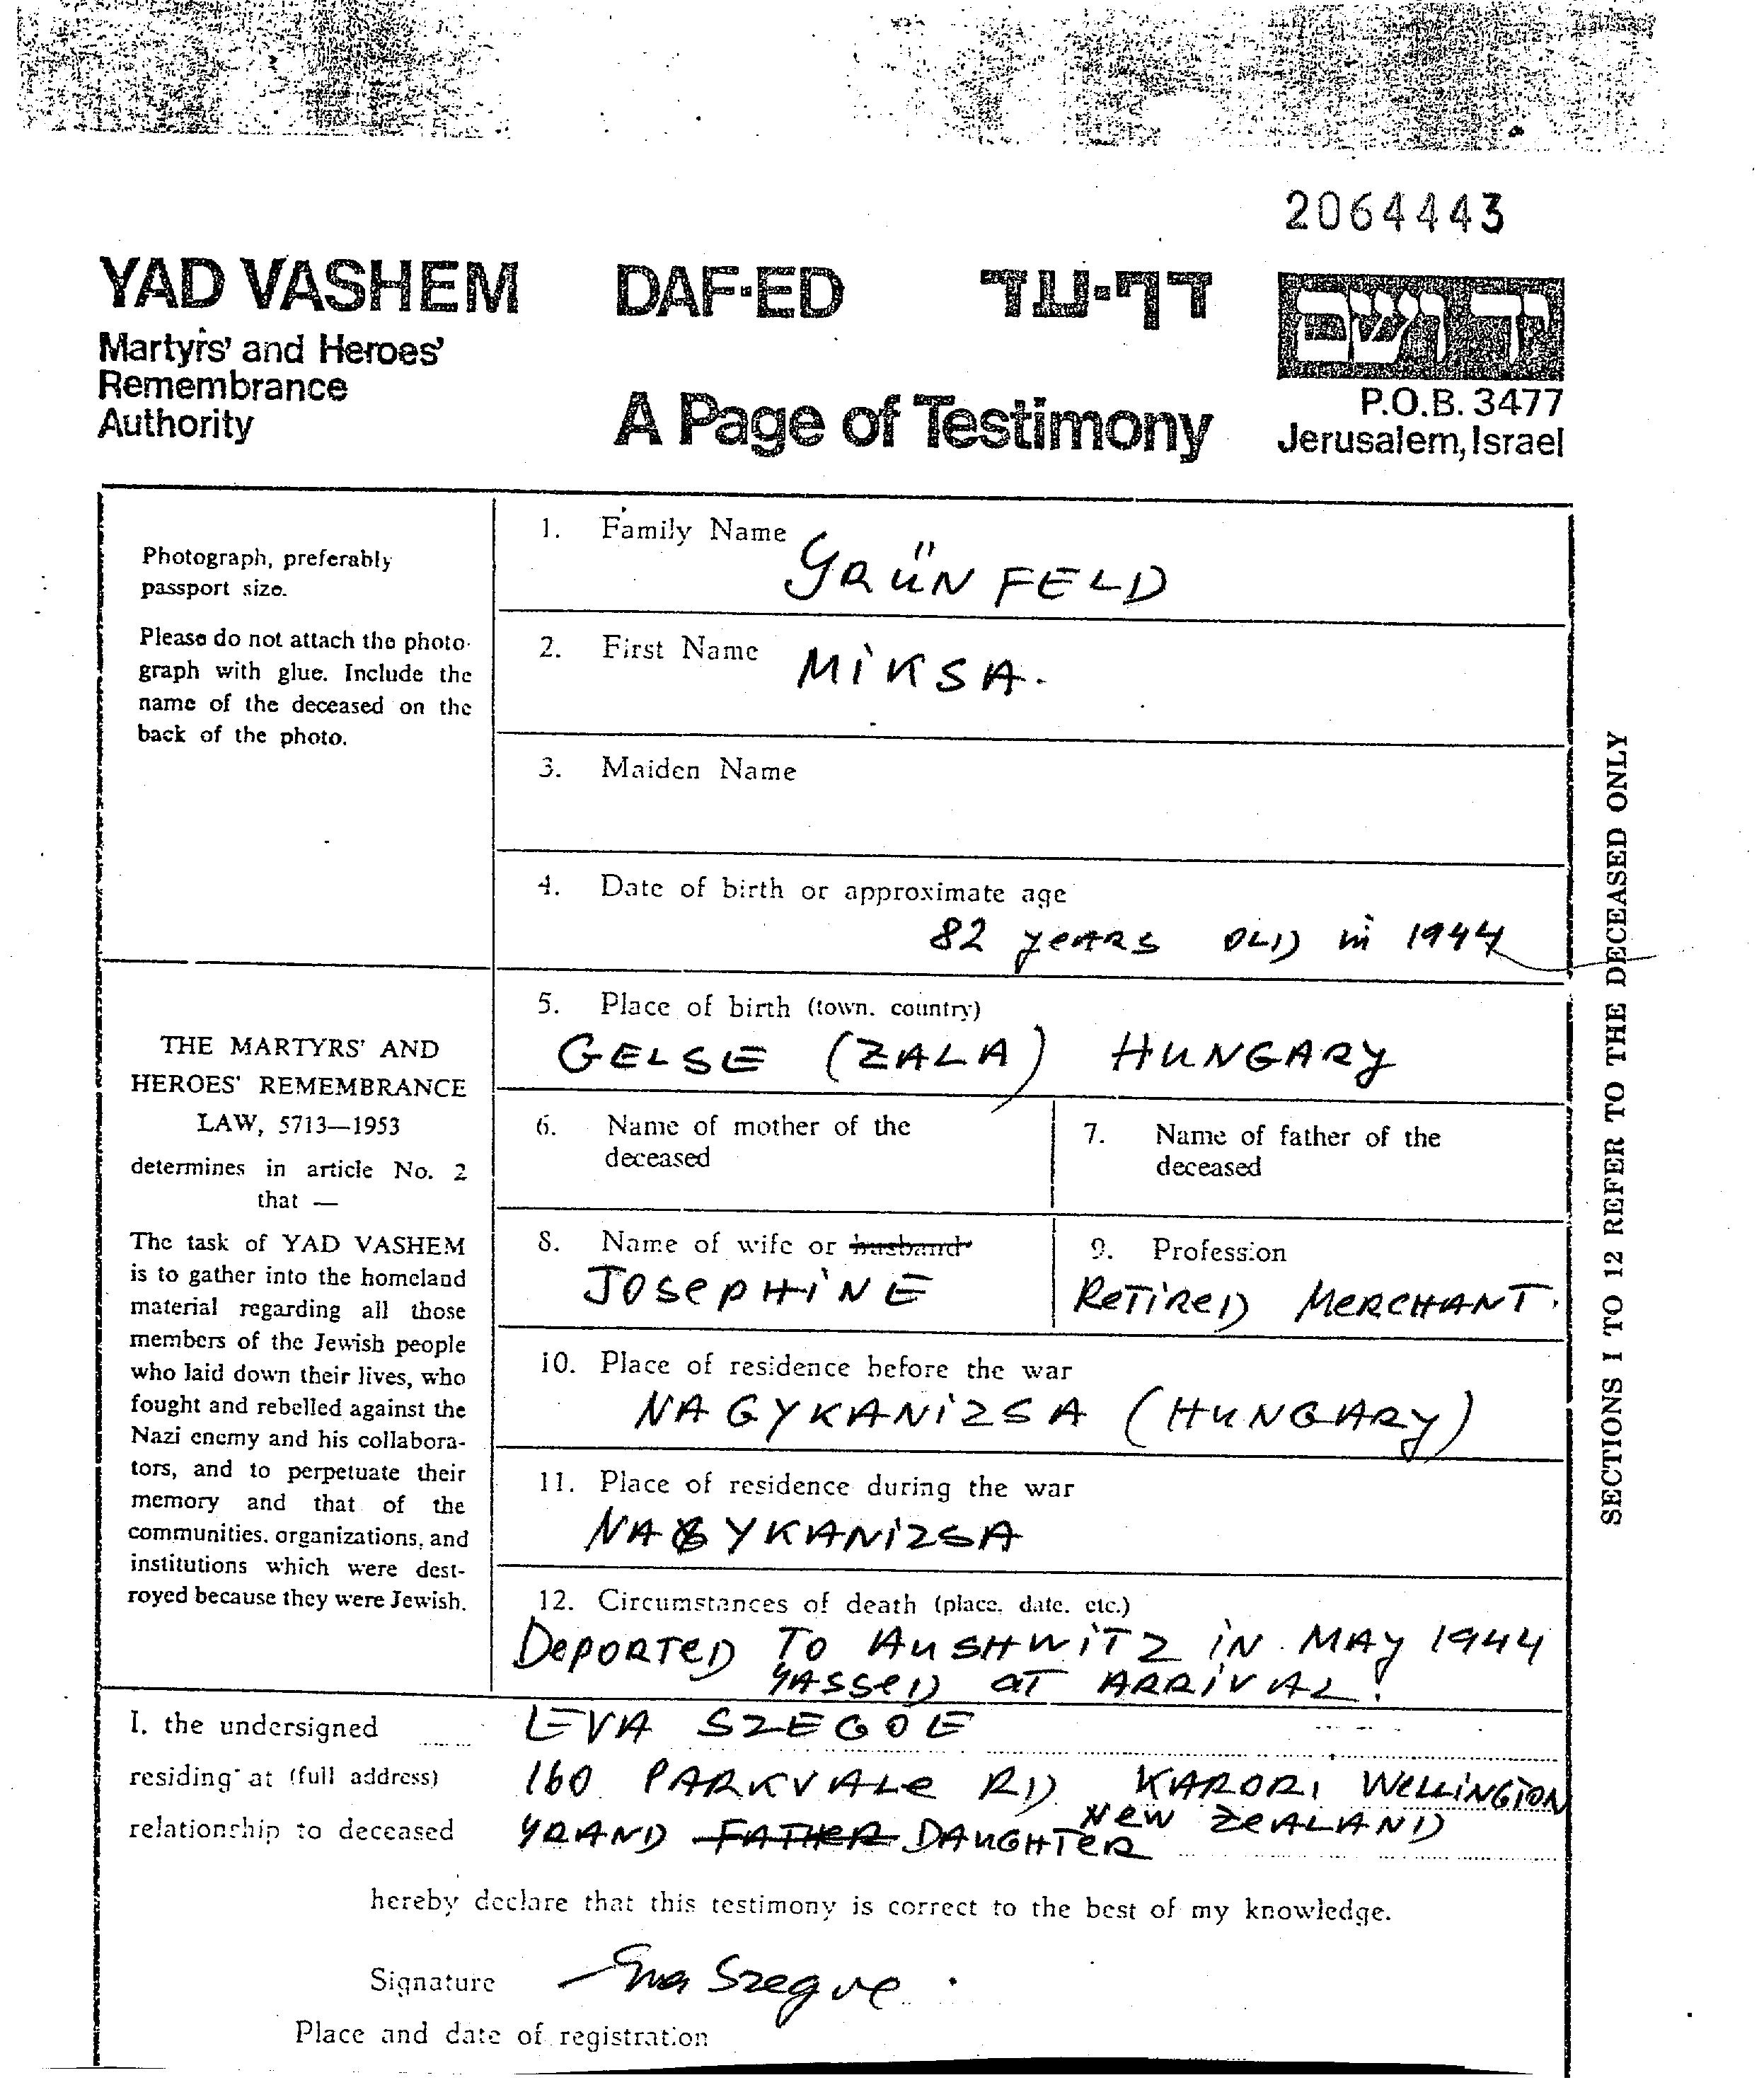 2064443
YAD VASHEM DAF-ED דף-עד יד ושם
Martyrs' and Heroes'
Remembrance
Authority
A Page of Testimony
P.O.B. 3477
Jerusalem, Israel
Photograph, preferably
passport size.
Please do not attach the photo-
graph with glue. Include the
name of the deceased on the
back of the photo.
THE MARTYRS' AND
HEROES' REMEMBRANCE
LAW, 5713—1953
determines in article No. 2
that —
The task of YAD VASHEM
is to gather into the homeland
material regarding all those
members of the Jewish people
who laid down their lives, who
fought and rebelled against the
Nazi enemy and his collabora-
tors, and to perpetuate their
memory and that of the
communities, organizations, and
institutions which were dest-
royed because they were Jewish.
1. Family Name
GRÜNFELD
2. First Name MIKSA.
3. Maiden Name
4. Date of birth or approximate age
82 years OLD in 1944
5. Place of birth (town, country)
GELSE (ZALA) HUNGARY
6. Name of mother of the
deceased
7. Name of father of the
deceased
8. Name of wife or husband
JOSePHiNE
9. Profession
ReTiReD MeRCHANT.
10. Place of residence before the war
NAGYKANiZSA (HUNGARY)
11. Place of residence during the war
NAGYKANiZSA
12. Circumstances of death (place, date, etc.)
DePORTeD TO AUSHWiTZ iN MAY 1944
GASSeD aT ARRiVAL!
SECTIONS 1 TO 12 REFER TO THE DECEASED ONLY
I, the undersigned EVA SZEGOE
residing at (full address) 160 PARKVALe RD KARORI WeLLiNGTON
NeW ZeALAND
relationship to deceased GRAND FATHER DAUGHTeR
hereby declare that this testimony is correct to the best of my knowledge.
Signature Eva Szegoe
Place and date of registration